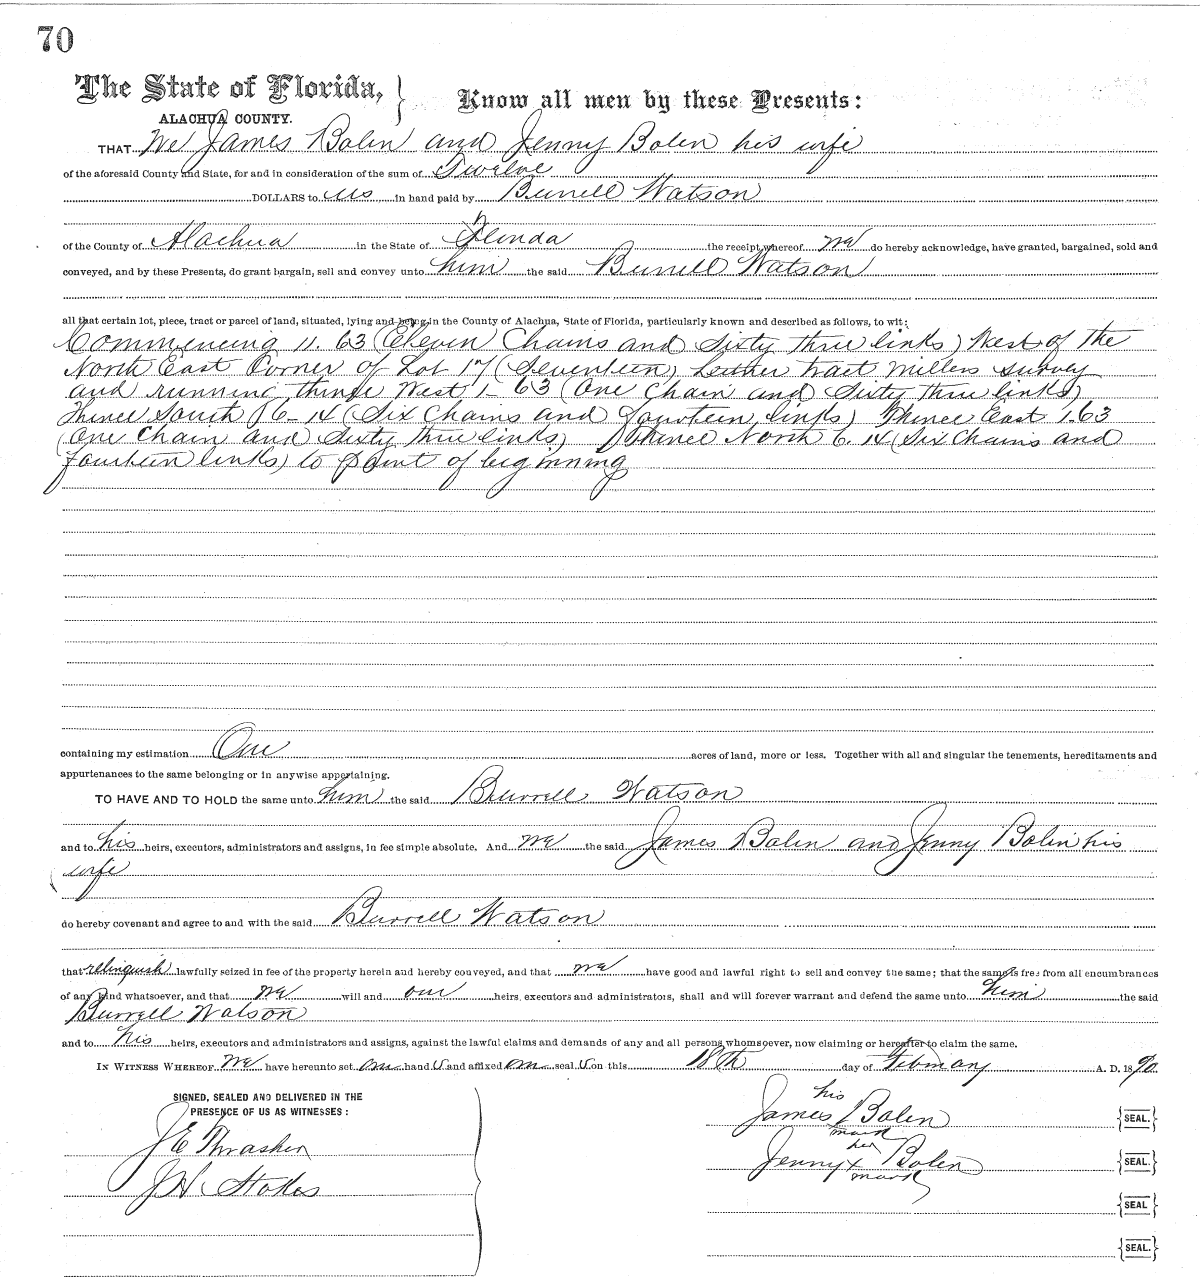 70
The State of Florida, } Know all men by these Presents:
ALACHUA COUNTY.
THAT We James Bolen and Jenny Bolen his wife
of the aforesaid County and State, for and in consideration of the sum of Twelve
DOLLARS to us in hand paid by Burrell Watson
of the County of Alachua in the State of Florida the receipt whereof we do hereby acknowledge, have granted, bargained, sold and
conveyed, and by these Presents, do grant bargain, sell and convey unto him the said Burrell Watson
all that certain lot, piece, tract or parcel of land, situated, lying and being in the County of Alachua, State of Florida, particularly known and described as follows, to wit:
Commencing 11.63 (Eleven Chains and Sixty three links) West of the
North East Corner of Lot 17 (Seventeen) tract Millers survey
and running thence West 1-63 (One Chain and Sixty three links)
Thence South 6-14 (Six Chains and fourteen links) Thence East 1.63
(One Chain and Sixty three links) Thence North 6.14 (Six Chains and
fourteen links) to point of beginning
containing my estimation One acres of land, more or less. Together with all and singular the tenements, hereditaments and
appurtenances to the same belonging or in anywise appertaining.
TO HAVE AND TO HOLD the same unto him the said Burrell Watson
and to his heirs, executors, administrators and assigns, in fee simple absolute. And we the said James Bolen and Jenny Bolen his
wife
do hereby covenant and agree to and with the said Burrell Watson
that relinquish lawfully seized in fee of the property herein and hereby conveyed, and that we have good and lawful right to sell and convey the same; that the same is free from all encumbrances
of any kind whatsoever, and that we will and our heirs, executors and administrators, shall and will forever warrant and defend the same unto him the said
Burrell Watson
and to his heirs, executors and administrators and assigns, against the lawful claims and demands of any and all persons whomsoever, now claiming or hereafter to claim the same.
IN WITNESS WHEREOF We have hereunto set our hand s and affixed our seal s on this 18th day of February A. D. 1890.
SIGNED, SEALED AND DELIVERED IN THE
PRESENCE OF US AS WITNESSES:
J E Thrasher
J H Stokes
his
James Bolen {SEAL.}
mark
her
Jenny x Bolen {SEAL.}
mark
{SEAL}
{SEAL.}